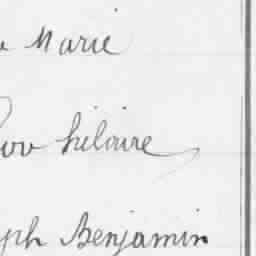 Marie
hilaire
ph Benjamin